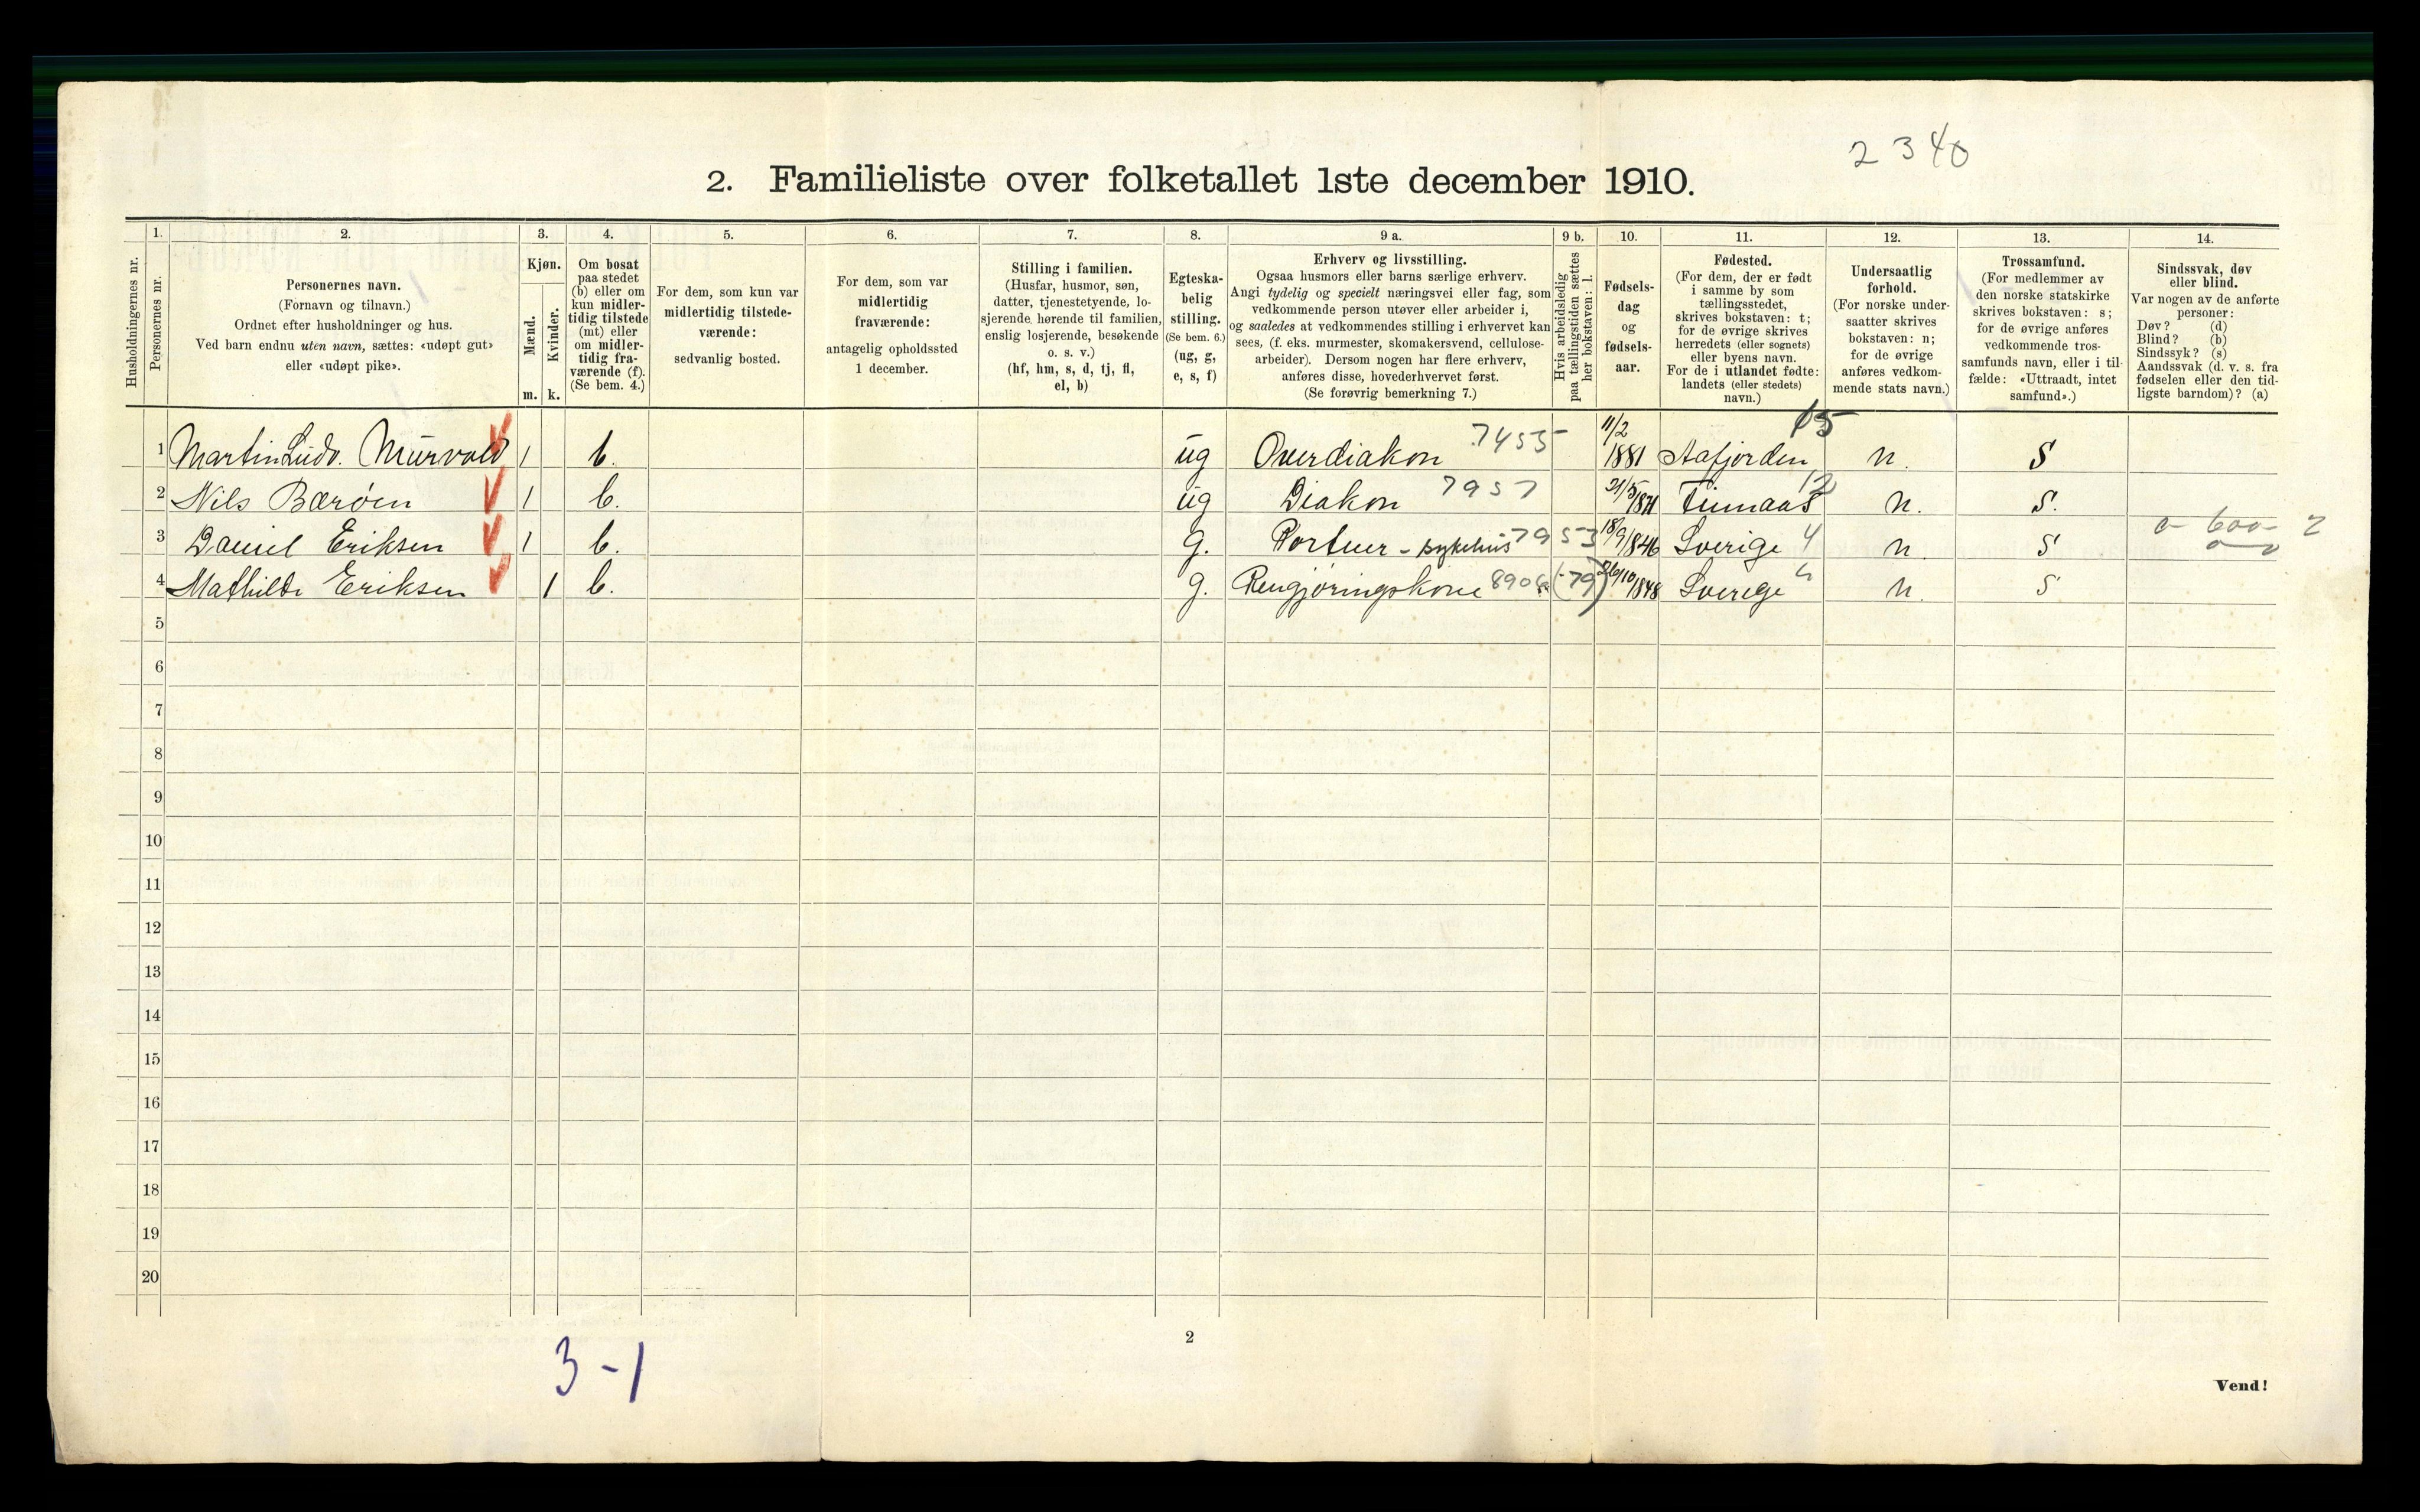 2340
2. Familieliste over folketallet 1ste december 1910.
1. 2. 3. 4. 5. 6. 7. 8. 9 a. 9 b. 10. 11. 12. 13. 14.
Husholdningernes nr.
Personernes nr.
Personernes navn.
(Fornavn og tilnavn.)
Ordnet efter husholdninger og hus.
Ved barn endnu uten navn, sættes: «udøpt gut»
eller «udøpt pike».
Kjøn.
Mænd.
Kvinder.
m. k.
Om bosat
paa stedet
(b) eller om
kun midler-
tidig tilstede
(mt) eller
om midler-
tidig fra-
værende (f).
(Se bem. 4.)
For dem, som kun var
midlertidig tilstede-
værende:
sedvanlig bosted.
For dem, som var
midlertidig
fraværende:
antagelig opholdssted
1 december.
Stilling i familien.
(Husfar, husmor, søn,
datter, tjenestetyende, lo-
sjerende hørende til familien,
enslig losjerende, besøkende
o. s. v.)
(hf, hm, s, d, tj, fl,
el, b)
Egteska-
belig
stilling.
(Se bem. 6.)
(ug, g,
e, s, f)
Erhverv og livsstilling.
Ogsaa husmors eller barns særlige erhverv.
Angi tydelig og specielt næringsvei eller fag, som
vedkommende person utøver eller arbeider i,
og saaledes at vedkommendes stilling i erhvervet kan
sees, (f. eks. murmester, skomakersvend, cellulose-
arbeider). Dersom nogen har flere erhverv,
anføres disse, hovederhvervet først.
(Se forøvrig bemerkning 7.)
Hvis arbeidsledig
paa tællingstiden sættes
her bokstaven: l.
Fødsels-
dag
og
fødsels-
aar.
Fødested.
(For dem, der er født
i samme by som
tællingsstedet,
skrives bokstaven: t;
for de øvrige skrives
herredets (eller sognets)
eller byens navn.
For de i utlandet fødte:
landets (eller stedets)
navn.)
Undersaatlig
forhold.
(For norske under-
saatter skrives
bokstaven: n;
for de øvrige
anføres vedkom-
mende stats navn.)
Trossamfund.
(For medlemmer av
den norske statskirke
skrives bokstaven: s;
for de øvrige anføres
vedkommende tros-
samfunds navn, eller i til-
fælde: «Uttraadt, intet
samfund».)
Sindssvak, døv
eller blind.
Var nogen av de anførte
personer:
Døv? (d)
Blind? (b)
Sindssyk? (s)
Aandssvak (d. v. s. fra
fødselen eller den tid-
ligste barndom)? (a)
1 Martin Ludv. Murvold 1 b. ug Overdiakon 7455 11/2 1881 Aafjorden 15 n. S
2 Nils Bærøen 1 b. ug Diakon 7957 21/5 1871 Finnaas 12 n. S.
3 Daniel Eriksen 1 b. g. Portner - sykehus 7953 18/9 1846 Sverige 4 n. S
4 Mathilde Eriksen 1 b. g. Rengjøringskone 8906 (-79) 26/10 1848 Sverige 4 n. S
5
6
7
8
9
10
11
12
13
14
15
16
17
18
19
20
3-1
2
Vend!